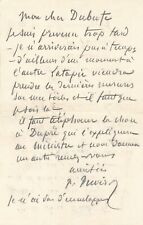 mon cher Dubufe
je suis prévenu trop tard
- je n'arriverais pas à temps
- d'ailleurs d'un moment à
l'autre Latapie viendra
prendre les dernières mesures
sur mes toiles et il faut que
je sois là
il faut téléphoner la chose
à Dupré qui l'expliquera
au ministre et nous donnera
un autre rendez-vous
amitiés
je n'ai pas d'enveloppe